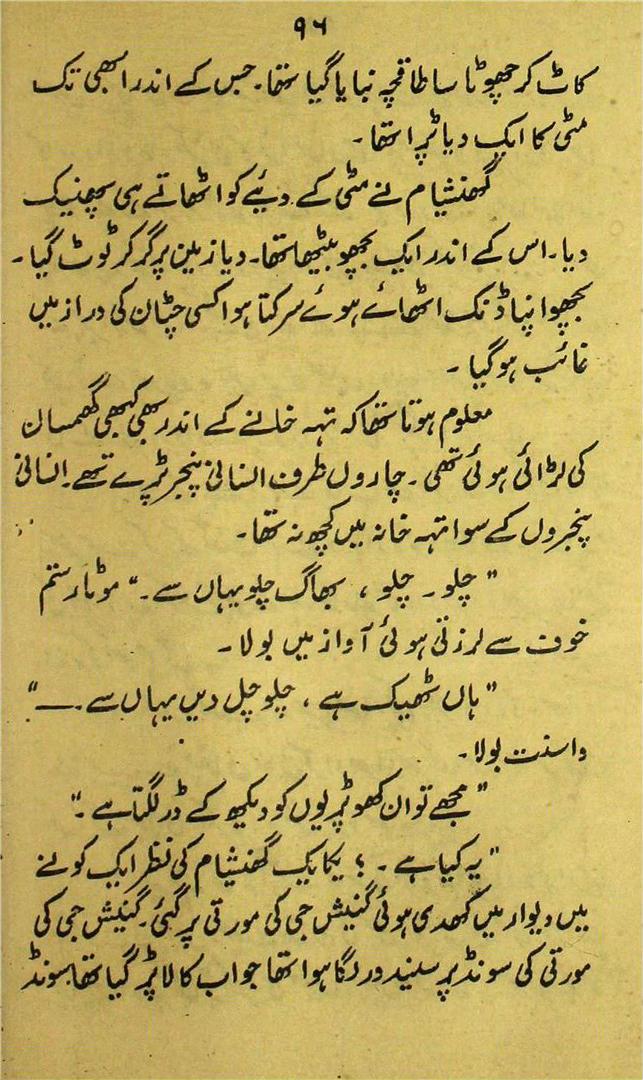 ۹۶
کاٹ کر چھوٹا سا طاقچہ بنایا گیا تھا۔ جس کے اندر ابھی تک
مٹی کا ایک دیا پڑا تھا۔
گھنشیام نے مٹی کے دیئے کو اٹھاتے ہی پھینک
دیا۔ اس کے اندر ایک بچھو بیٹھا تھا۔ دیا زمین پر گر کر ٹوٹ گیا۔
بچھو اپنا ڈنک اٹھائے ہوئے سرکتا ہوا کسی چٹان کی دراز میں
غائب ہو گیا۔
معلوم ہوتا تھا کہ تہہ خانے کے اندر بھی کبھی گھمسان
کی لڑائی ہوئی تھی۔ چاروں طرف انسانی پنجر پڑے تھے۔ انسانی
پنجروں کے سوا تہہ خانہ میں کچھ نہ تھا۔
"چلو۔ چلو، بھاگ چلو یہاں سے۔" موٹا رستم
خوف سے لرزتی ہوئی آواز میں بولا۔
"ہاں ٹھیک ہے، چلو چل دیں یہاں سے۔—"
واسنت بولا۔
"مجھے تو ان کھوپڑیوں کو دیکھ کے ڈر لگتا ہے۔"
"یہ کیا ہے۔؟ یکایک گھنشیام کی نظر ایک کونے
میں دیوار میں کھدی ہوئی گنیش جی کی مورتی پر گئی۔ گنیش جی کی
مورتی کی سونڈ پر سیندور لگا ہوا تھا جو اب کالا پڑ گیا تھا۔ سونڈ